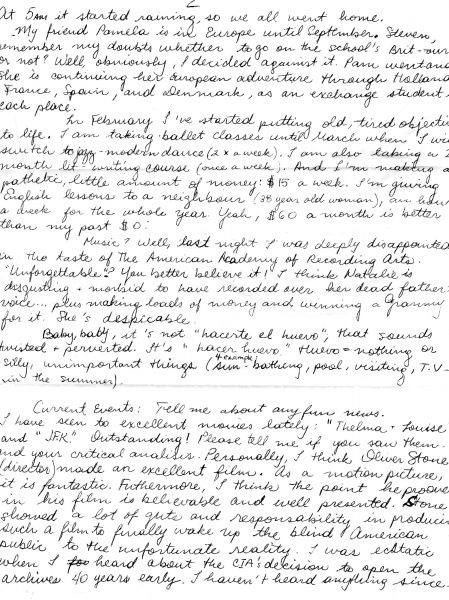 2
At 5AM it started raining, so we all went home.
My friend Pamela is in Europe until September. Steven,
remember my doubts whether to go on the school's Brit-our
or not? Well, obviously, I decided against it. Pam went and
she is continuing her European adventure through Holland,
France, Spain, and Denmark, as an exchange student in
each place.
In February I've started putting old, tired objectives
to life. I am taking ballet classes until March when I will
switch to jazz-modern dance (2 x a week). I am also taking a 2
month lit writing course (once a week). And I'm making a
pathetic, little amount of money: $15 a week. I'm giving
English lessons to a neighbour (38 year old woman), an hour
a week for the whole year. Yeah, $60 a month is better
than my past $0.
Music? Well, last night I was deeply disappointed
in the taste of The American Academy of Recording Arts.
"Unforgettable"? You better believe it! I think Natalie is
disgusting + morbid to have recorded over her dead father's
voice... plus making loads of money and winning a Grammy
for it. She's despicable.
Baby, baby, it's not "hacerte el huevo", that sounds
twisted + perverted. It's "hacer huevo." Huevo = nothing or
silly, unimportant things (4 example: sun-bathing, pool, visiting, T.V-
in the summer).
Current Events: Tell me about any fun news.
I have seen to excellent movies lately: "Thelma + Louise
and "JFK." Outstanding! Please tell me if you saw them
and your critical analisis. Personally, I think Oliver Stone
(director) made an excellent film. As a motion picture,
it is fantastic. Futhermore, I think the point he proves
in his film is believable and well presented. Stone
showed a lot of guts and responsability in producing
such a film to finally wake up the blind American
public to the unfortunate reality. I was ecstatic
when I heard about the CIA's decision to open the
archives 40 years early. I haven't heard anything since.